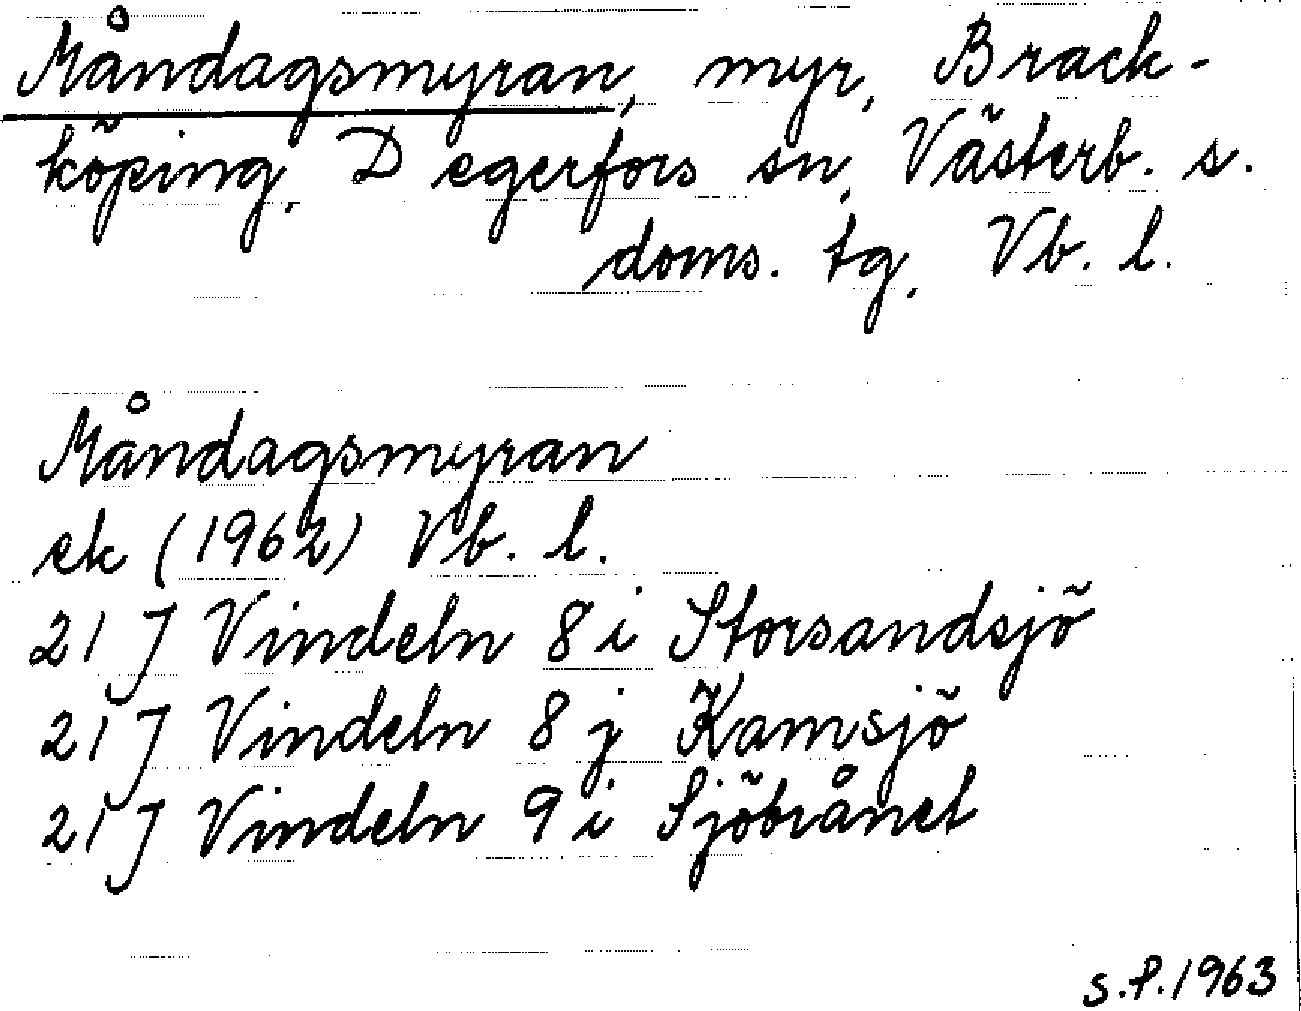 Måndagsmyran, myr, Brack-
köping, Degerfors sn, Västerb. s.
doms. tg, Vb. l.
Måndagsmyran
ek (1962) Vb. l.
21 J Vindeln 8 i Storsandsjö
21 J Vindeln 8 j Kamsjö
21 J Vindeln 9 i Sjöbrånet
S.P. 1963